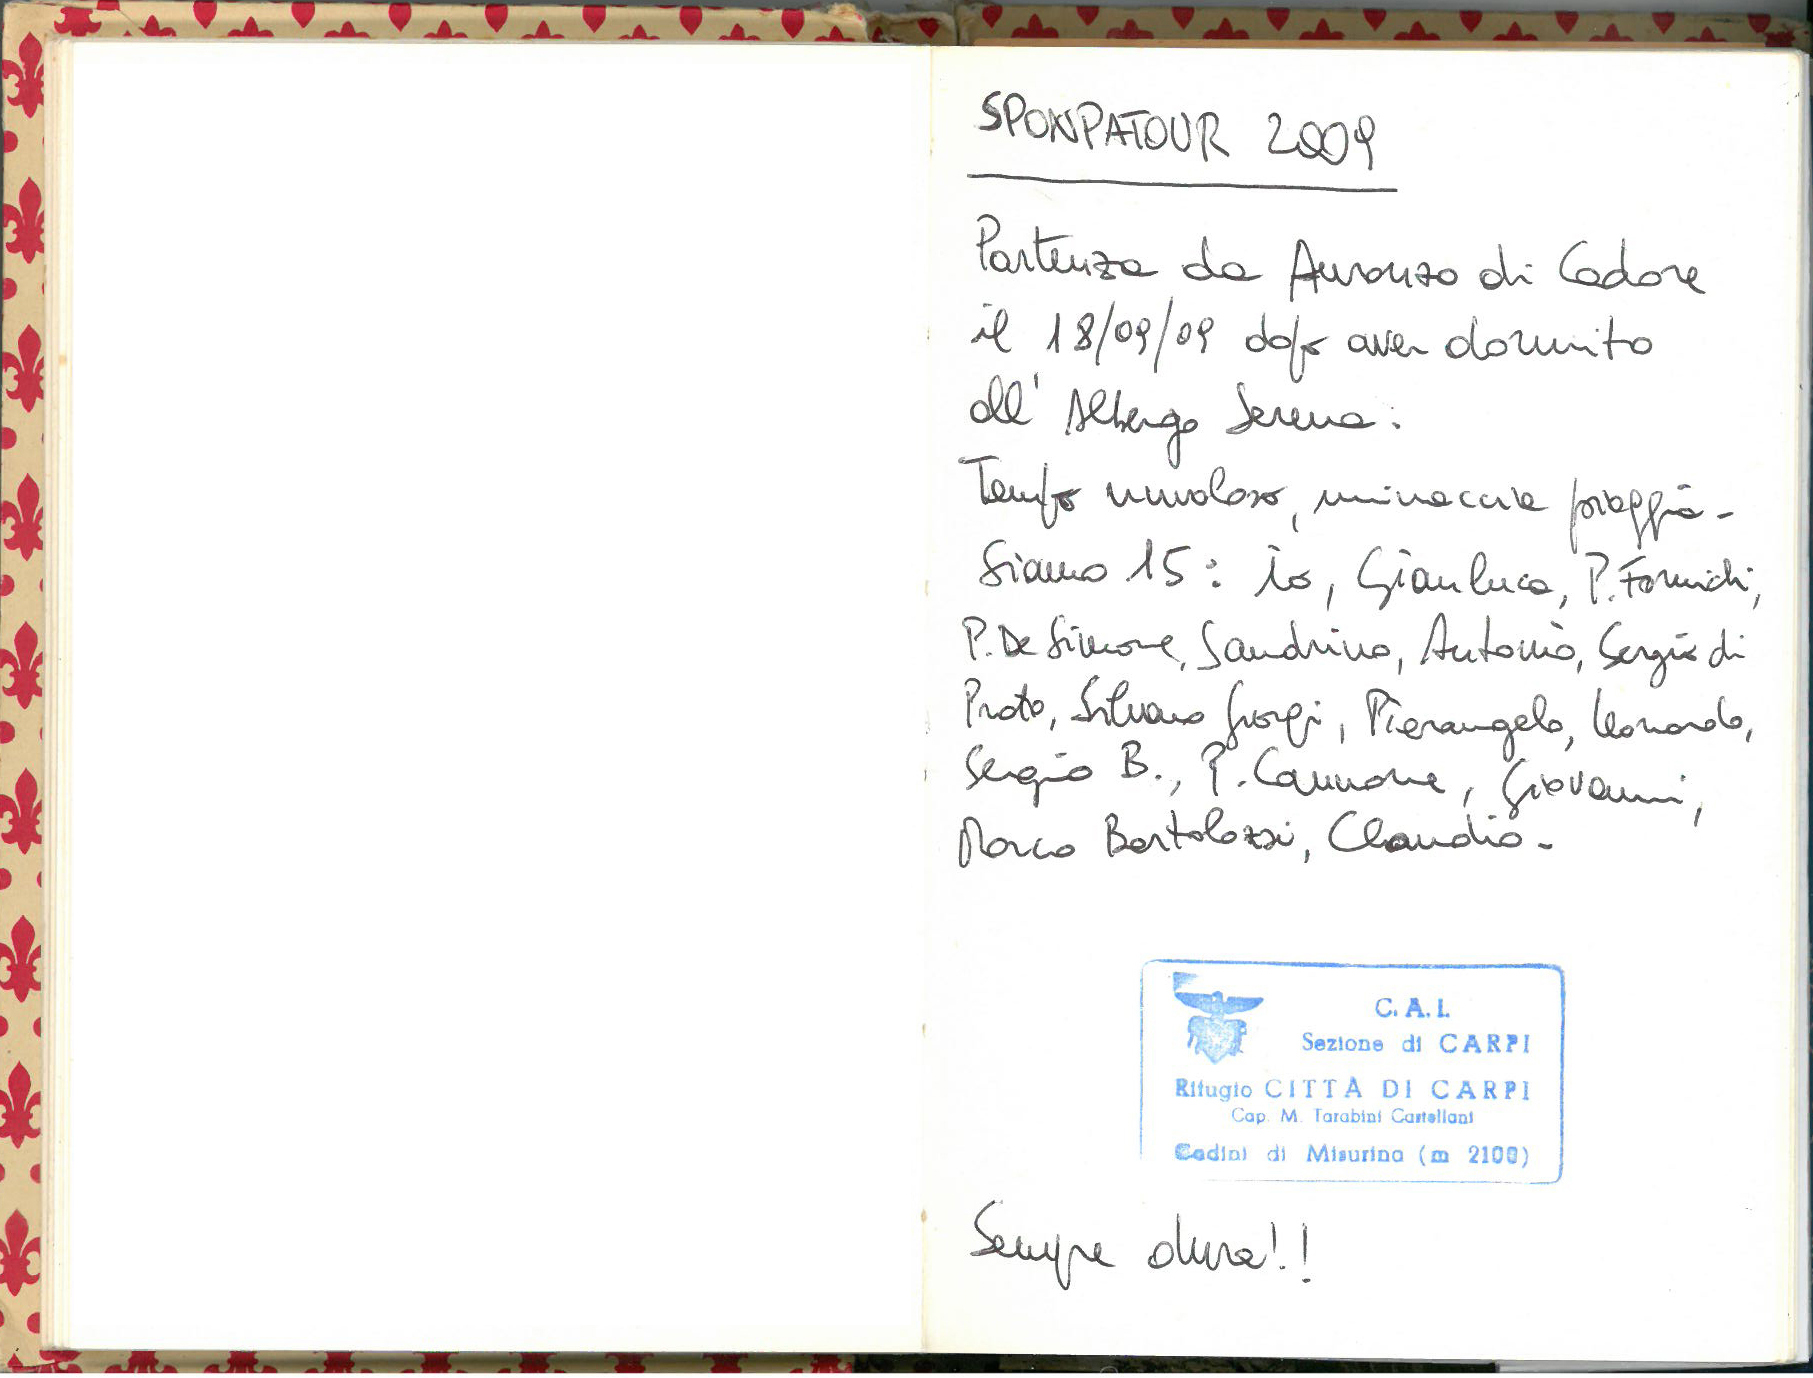 SPONPATOUR 2009
Partenza da Auronzo di Cadore
il 18/09/09 dopo aver dormito
all' Albergo Serena.
Tempo nuvoloso, minaccia pioggia -
Siamo 15: io, Gianluca, P. Formichi,
P. De Simone, Sandrino, Antonio, Sergio di
Prato, Silvano Giorgi, Pierangelo, Leonardo,
Sergio B., P. Cannone, Giovanni,
Marco Bartolozzi, Claudio -
C. A. I.
Sezione di CARPI
Rifugio CITTÀ DI CARPI
Cap. M. Tarabini Castellani
Cadini di Misurina (m 2100)
Sempre dura!!